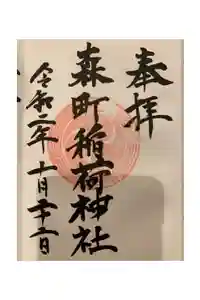 奉拝
森町稲荷神社
令和二年十月二十二日